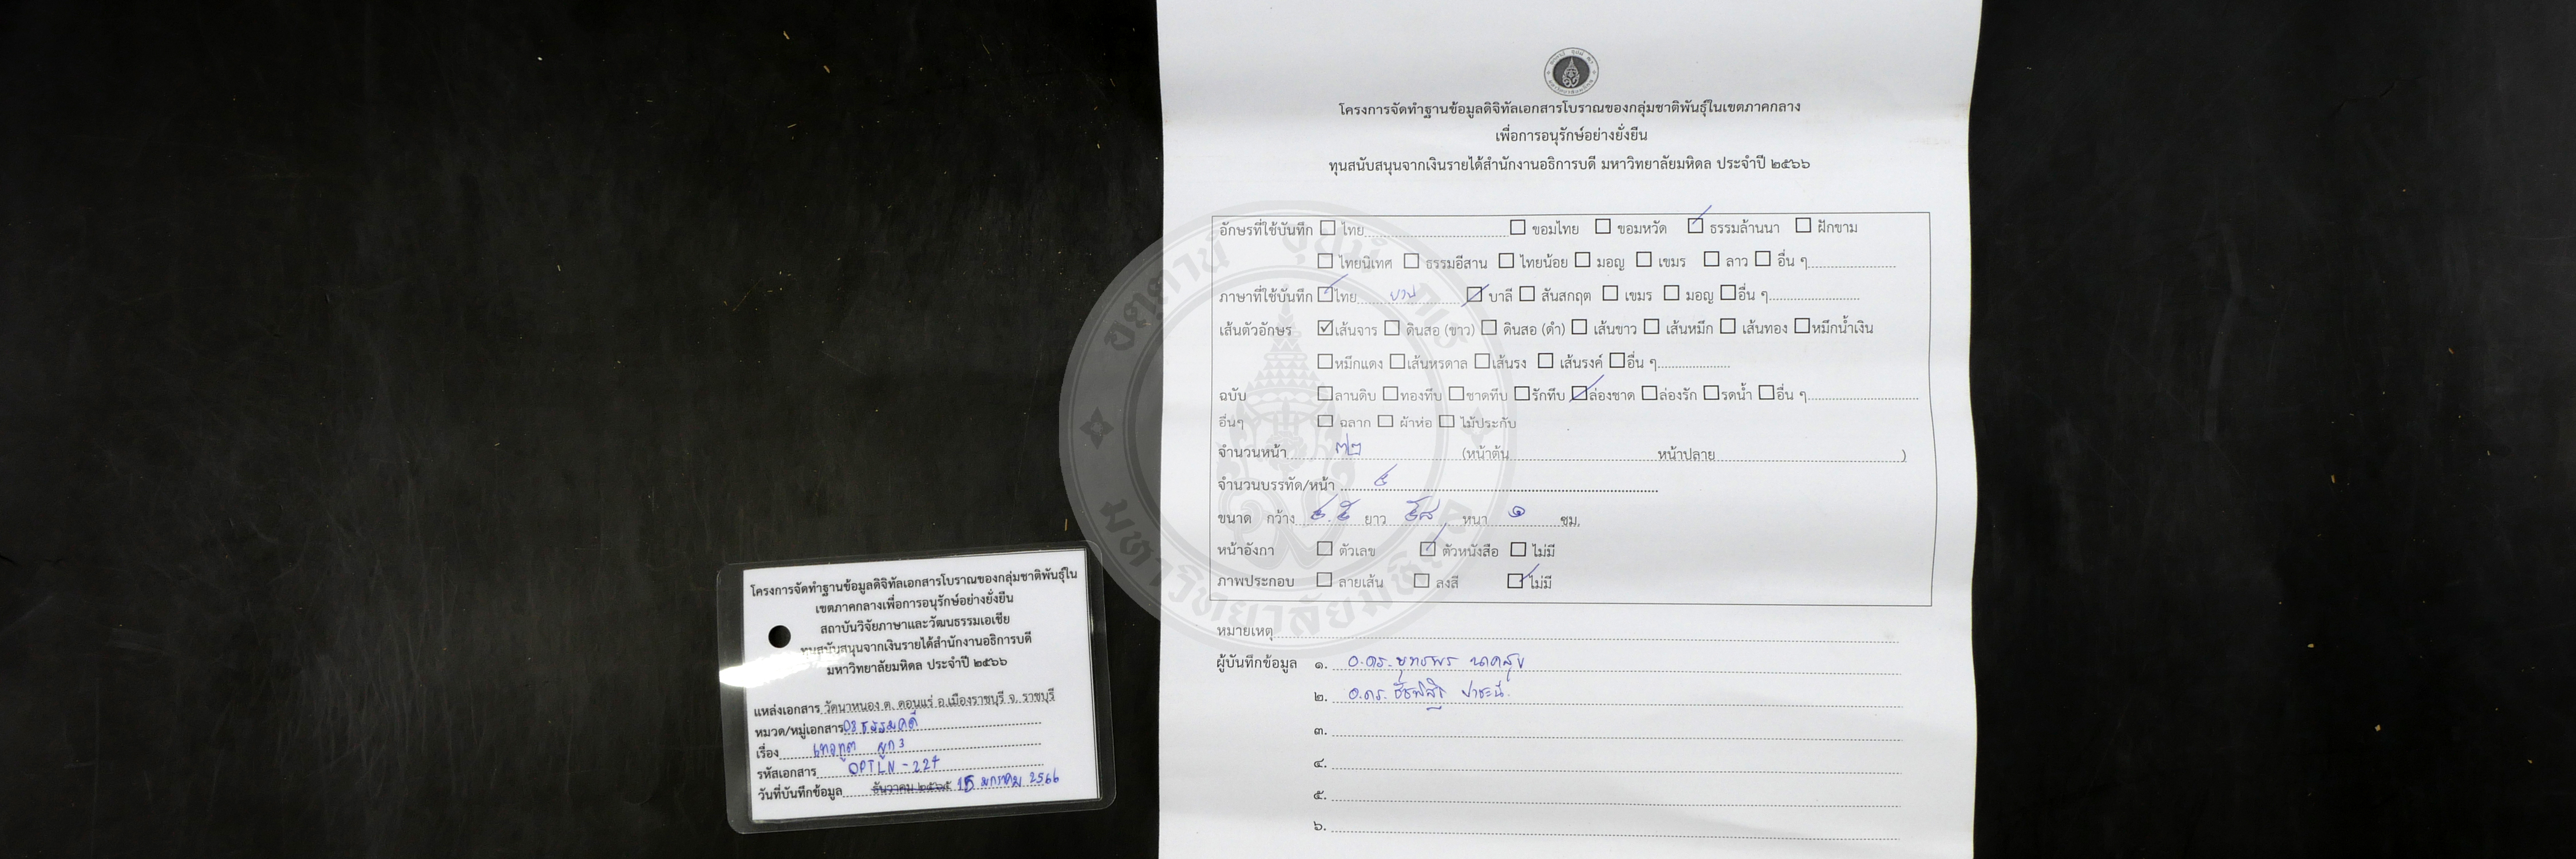 โครงการจัดทำฐานข้อมูลดิจิทัลเอกสารโบราณของกลุ่มชาติพันธุ์ในเขตภาคกลาง
เพื่อการอนุรักษ์อย่างยั่งยืน
ทุนสนับสนุนจากเงินรายได้สำนักงานอธิการบดี มหาวิทยาลัยมหิดล ประจำปี ๒๕๖๖
อักษรที่ใช้บันทึก ไทย ขอมไทย ขอมหวัด ธรรมล้านนา ฝักขาม
ไทยนิเทศ ธรรมอีสาน ไทยน้อย มอญ เขมร ลาว อื่น ๆ
ภาษาที่ใช้บันทึก ไทย บาลี สันสกฤต เขมร มอญ อื่น ๆ
เส้นตัวอักษร เส้นจาร ดินสอ (ขาว) ดินสอ (ดำ) เส้นขาว เส้นหมึก เส้นทอง หมึกน้ำเงิน
หมึกแดง เส้นหรดาล เส้นรง เส้นรงค์ อื่น ๆ
ฉบับ ลานดิบ ทองทึบ ชาดทึบ รักทึบ ล่องชาด ล่องรัก รดน้ำ อื่น ๆ
อื่นๆ ฉลาก ผ้าห่อ ไม้ประกับ
จำนวนหน้า ๗๒ (หน้าต้น หน้าปลาย )
จำนวนบรรทัด/หน้า ๕
ขนาด กว้าง ๕.๕ ยาว ๕๘ หนา ๑ ซม.
หน้าอังกา ตัวเลข ตัวหนังสือ ไม่มี
ภาพประกอบ ลายเส้น ลงสี ไม่มี
หมายเหตุ
ผู้บันทึกข้อมูล ๑. อ.ดร.ยุทธพร นาคสุข
๒. อ.ดร.
๓.
๔.
๕.
๖.
โครงการจัดทำฐานข้อมูลดิจิทัลเอกสารโบราณของกลุ่มชาติพันธุ์ใน
เขตภาคกลางเพื่อการอนุรักษ์อย่างยั่งยืน
สถาบันวิจัยภาษาและวัฒนธรรมเอเชีย
ทุนสนับสนุนจากเงินรายได้สำนักงานอธิการบดี
มหาวิทยาลัยมหิดล ประจำปี ๒๕๖๖
แหล่งเอกสาร วัดนาหนอง ต. ดอนแร่ อ.เมืองราชบุรี จ. ราชบุรี
หมวด/หมู่เอกสาร 03 ธรรมคดี
เรื่อง เทวทูต ผูก 3
รหัสเอกสาร OPTLN - 227
วันที่บันทึกข้อมูล ธันวาคม ๒๕๖๕ 15 มกราคม 2566
อตฺตานํ อุปมํ กเร
มหาวิทยาลัยมหิดล